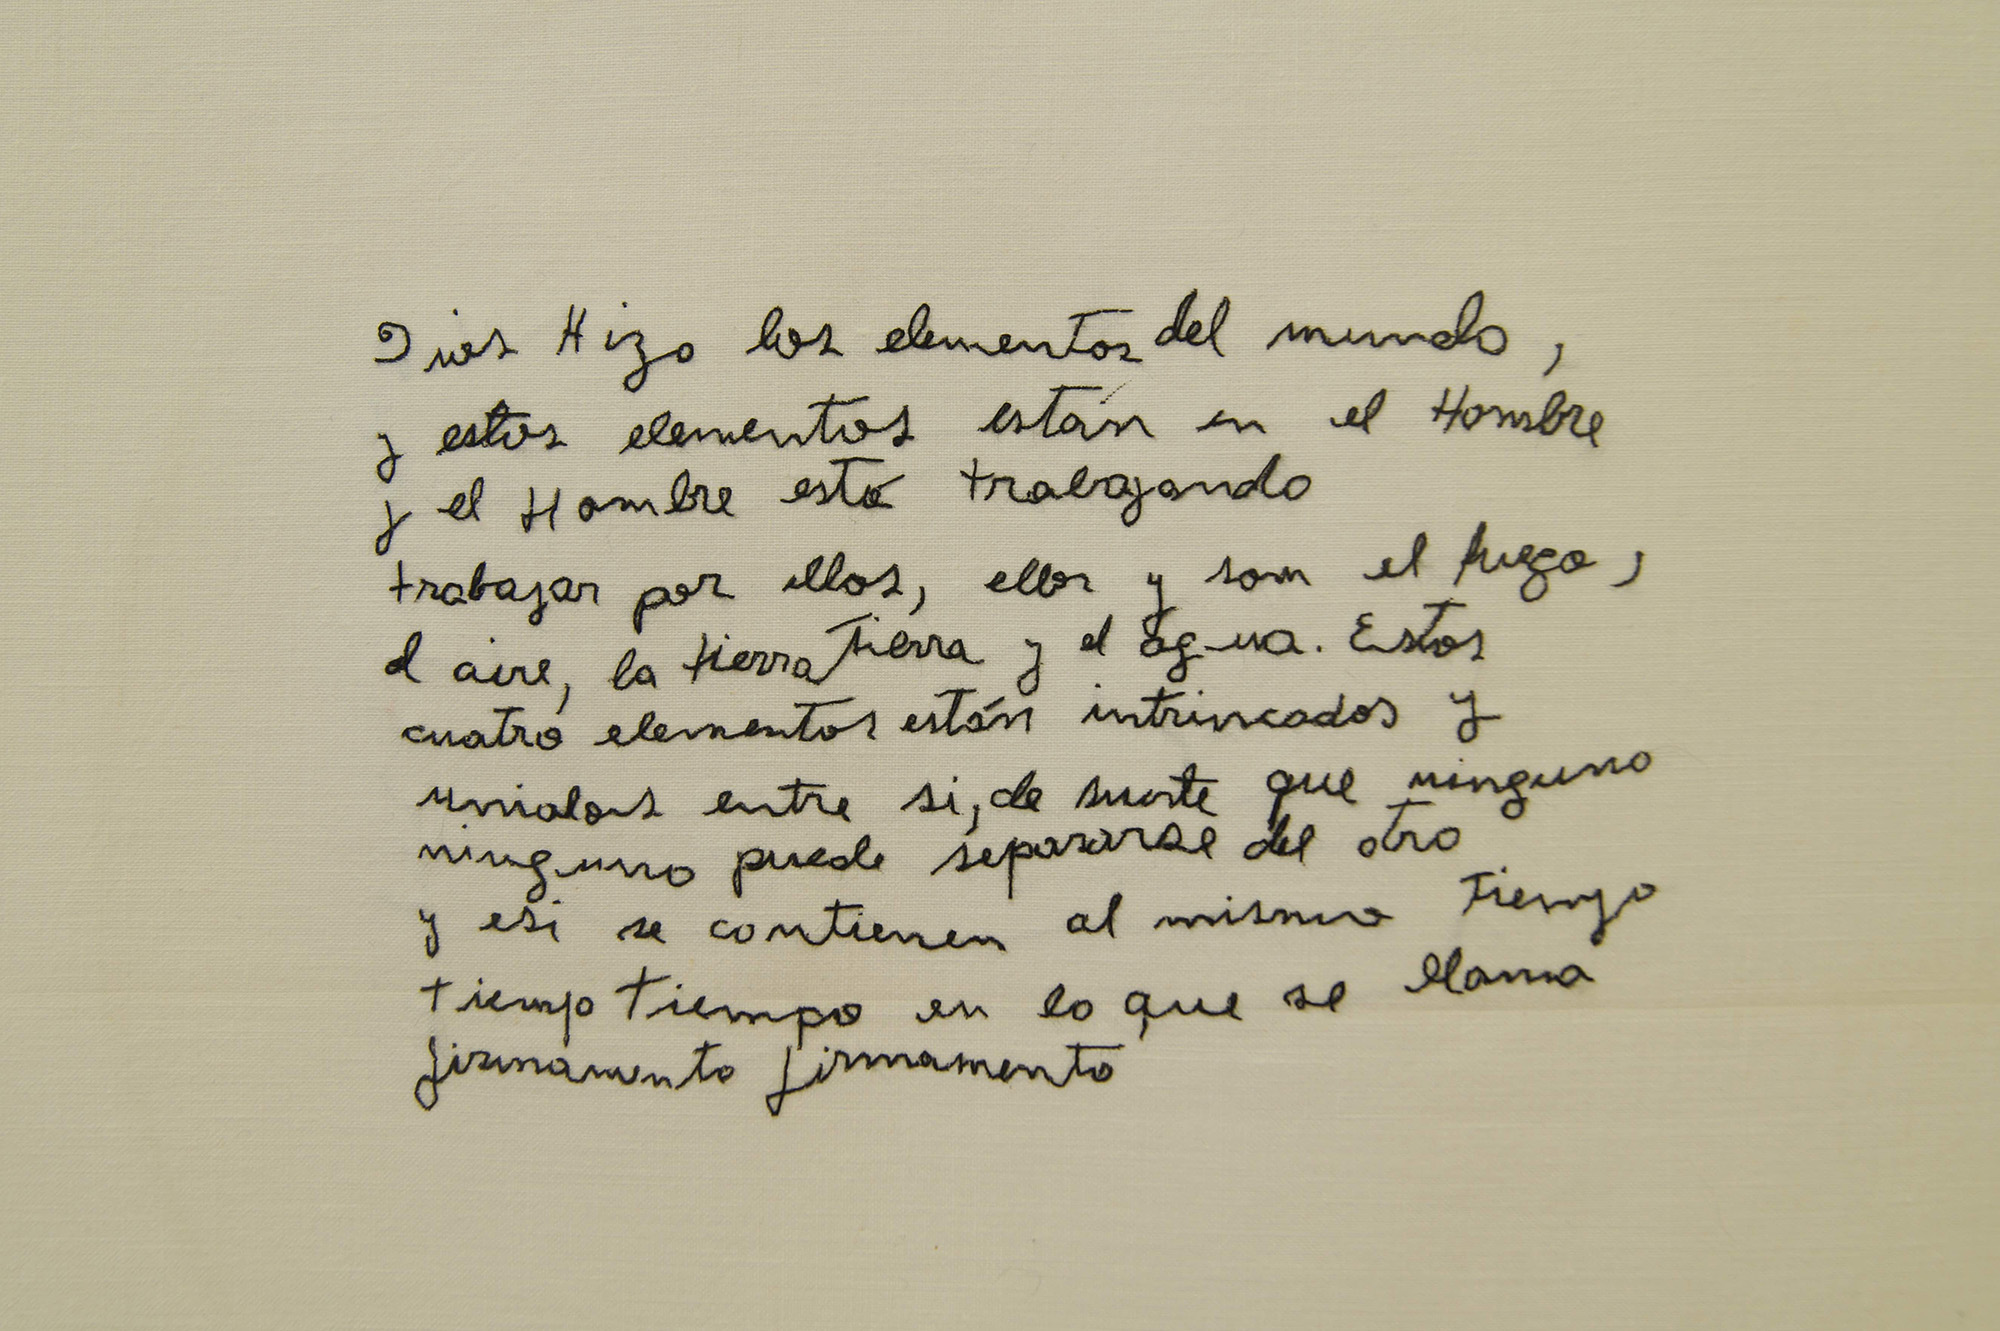 Dios Hizo los elementos del mundo,
y estos elementos están en el Hombre
y el Hombre está trabajando
trabajar por ellos, ellos y son el fuego,
el aire, la tierra Tierra y el agua. Estos
cuatro elementos están intrincados y
unidos entre si, de suerte que ninguno
ninguno puede separarse del otro
y esi se contienen al mismo Tiempo
tiempo Tiempo en lo que se llama
firmamento firmamento